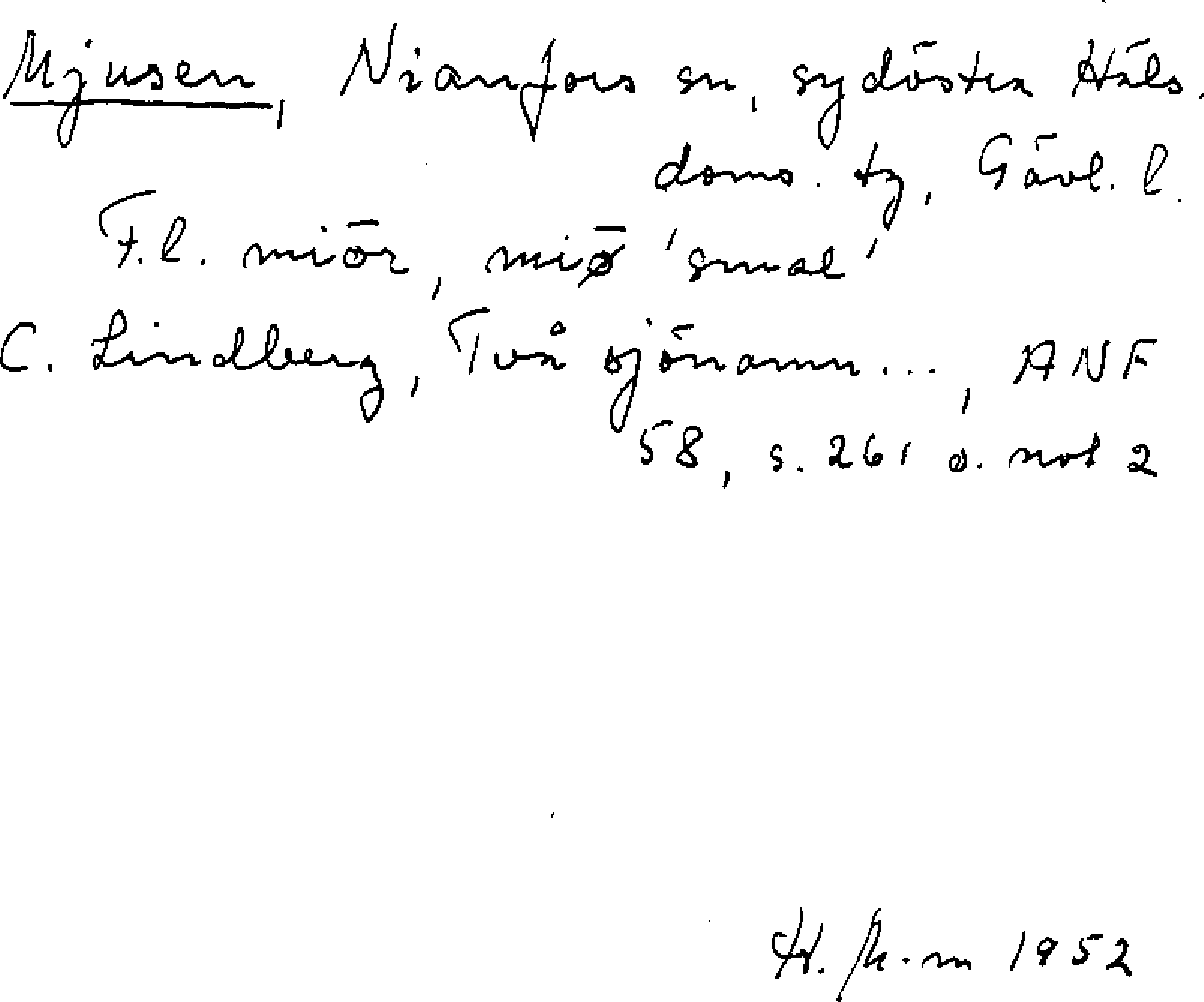 Mjusen, Nianfors sn, sydöstra Häls.
doms. tg, Gävl. l.
F.l. miōr, miø̄ 'smal'
C. Lindberg, Två sjönamn..., ANF
58, s. 261 o. not 2
1952